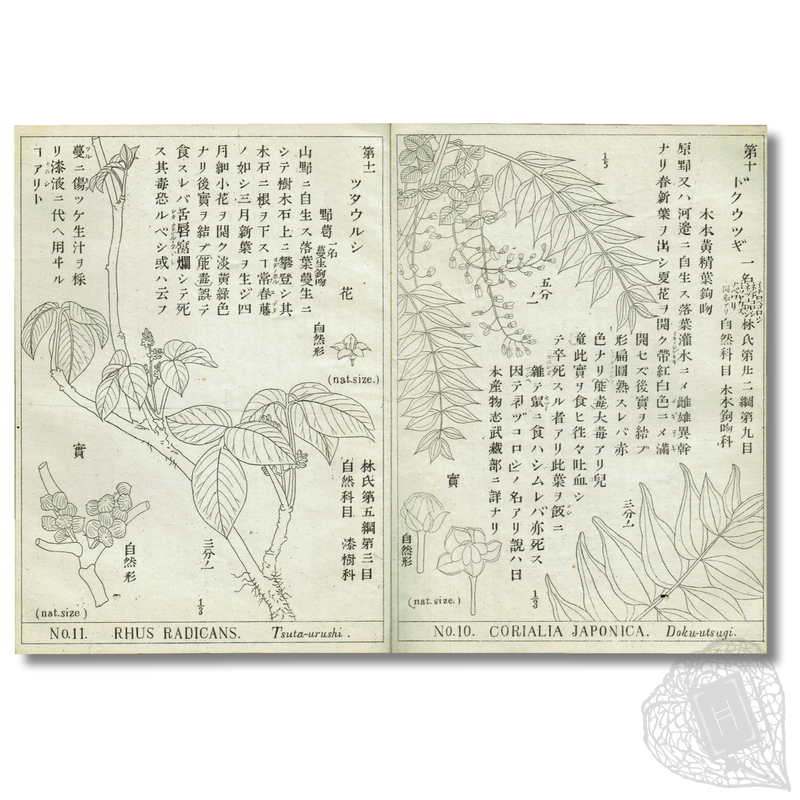 第十 ドクウツギ 一名
林氏第廿二綱第九目
自然科目 木本鉤吻科
木本黄精葉鉤吻
原野又ハ河邉ニ自生ス落葉灌木ニメ雌雄異幹
ナリ春新葉ヲ出シ夏花ヲ開ク帶紅白色ニメ滿
開セズ後實ヲ結ブ
形扁圓熟スレバ赤
色ナリ能毒大毒アリ兒
童此實ヲ食ヒ往々吐血シ
テ卒死スル者アリ此葉ヲ飯ニ
雜テ鼠ニ食ハシムレバ亦死ス
因テネヅコロシノ名アリ說ハ日
本産物志武藏部ニ詳ナリ
1/5
五分ノ一
三分ノ一
1/3
實
自然形
(nat.size.)
No.10. CORIALIA JAPONICA. Doku-utsugi.
第十一 ツタウルシ
野葛 一名 蔓生鉤吻
山野ニ自生ス落葉蔓生ニ
シテ樹木石上ニ攀登シ其
木石ニ根ヲ下スヿ常春藤
ノ如シ三月新葉ヲ生ジ四
月細小花ヲ開ク淡黄綠色
ナリ後實ヲ結ブ能毒誤テ
食スレバ舌唇腐爛シテ死
ス其毒恐ルベシ或ハ云フ
蔓ニ傷ッケ生汁ヲ採
リ漆液ニ代ヘ用ヰル
ヿアリト
花
自然形
(nat.size.)
林氏第五綱第三目
自然科目 漆樹科
三分ノ一
1/3
實
自然形
(nat.size)
No.11. RHUS RADICANS. Tsuta-urushi.
H